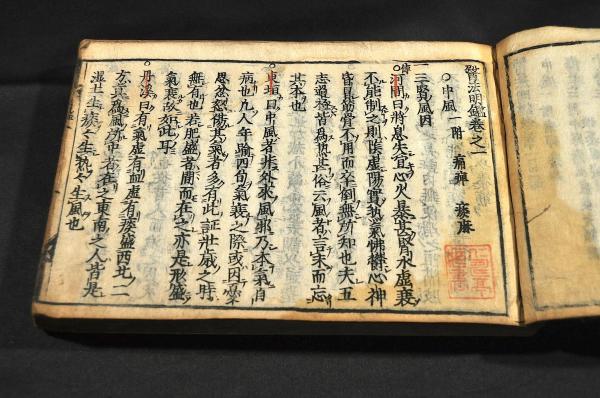 醫法明鑑卷之一
○中風一 附 痛痺 痰麻
一三賢風因
○河間曰將息失宜心火暴甚腎水虛衰
不能制之則陰虛陽實熱氣怫欝心神
昏冒筋骨不用而卒倒無所知也夫五
志過極皆為熱甚俗云風者言末而忘
其本也
○東垣曰中風者非外來風邪乃本氣自
病也凡人年踰四旬氣衰之際或因憂
思忿怒傷其氣者多有此証壯歲之時
無有也若肥盛者間而有之亦是形盛
氣衰故如此耳
○丹溪曰有氣虛有血虛有痰盛西北二
方真為風所中者有之東南之人皆是
濕土生痰々生熱々生風也